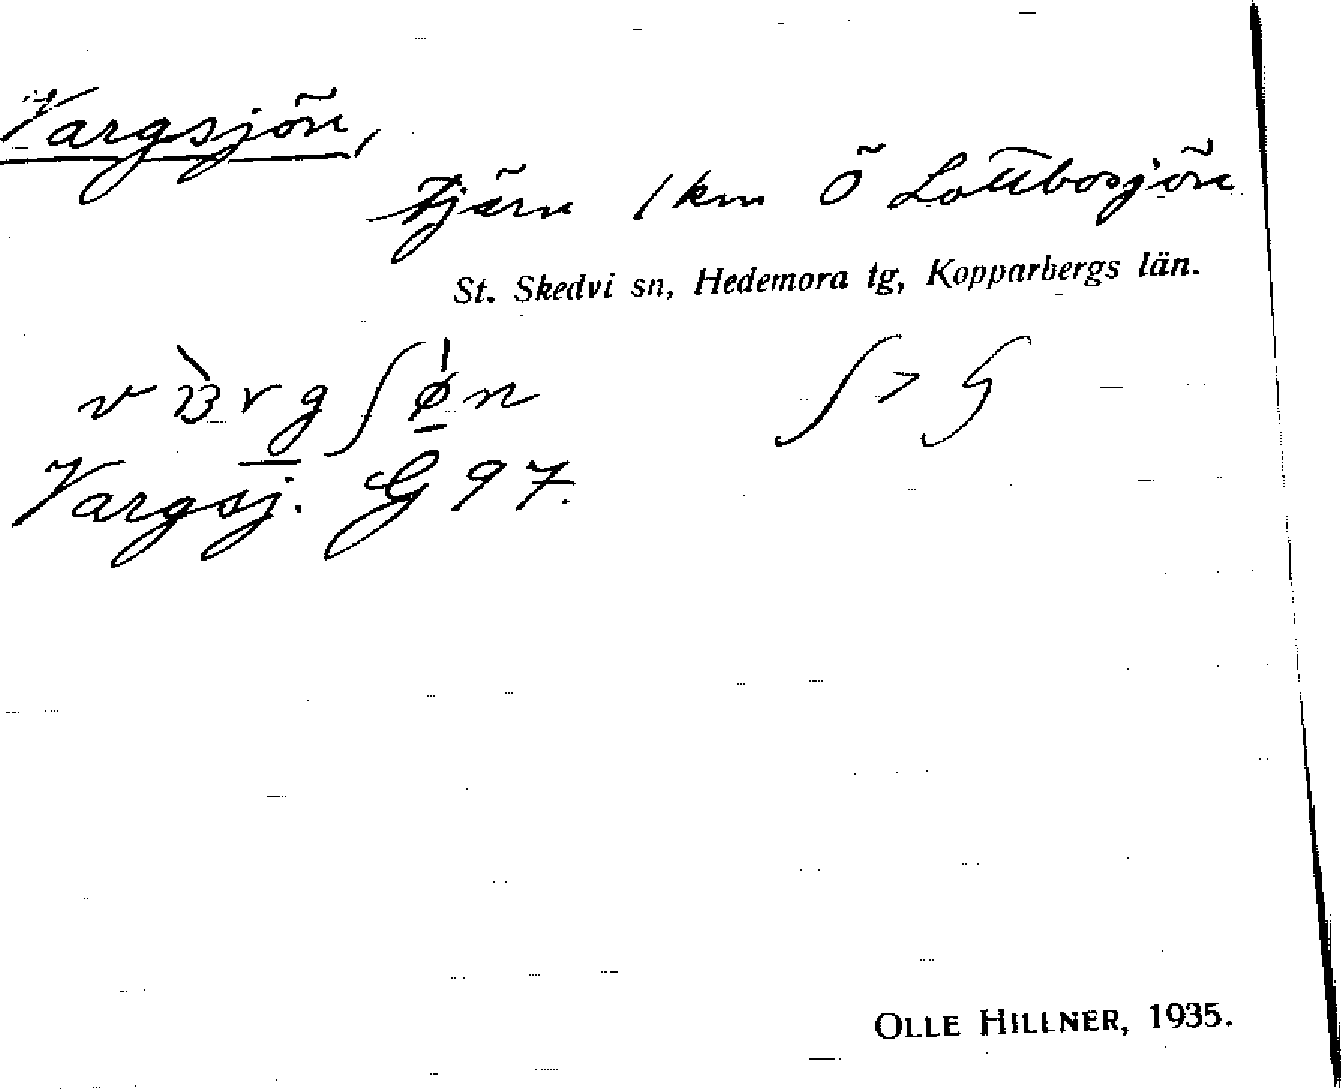 Vargsjön,
tjärn 1 km Ö Lottbosjön
St. Skedvi sn, Hedemora tg, Kopparbergs län.
Vargsj. G 97.
OLLE HILLNER, 1935.